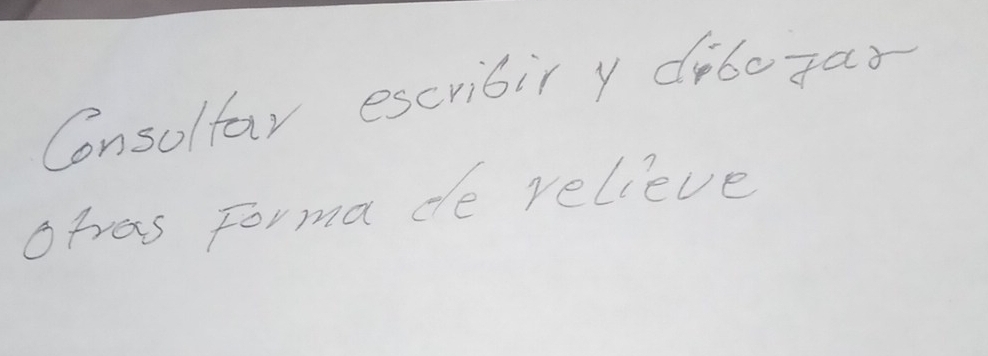 Consultar escribir y dibujar
otras Forma de relieve